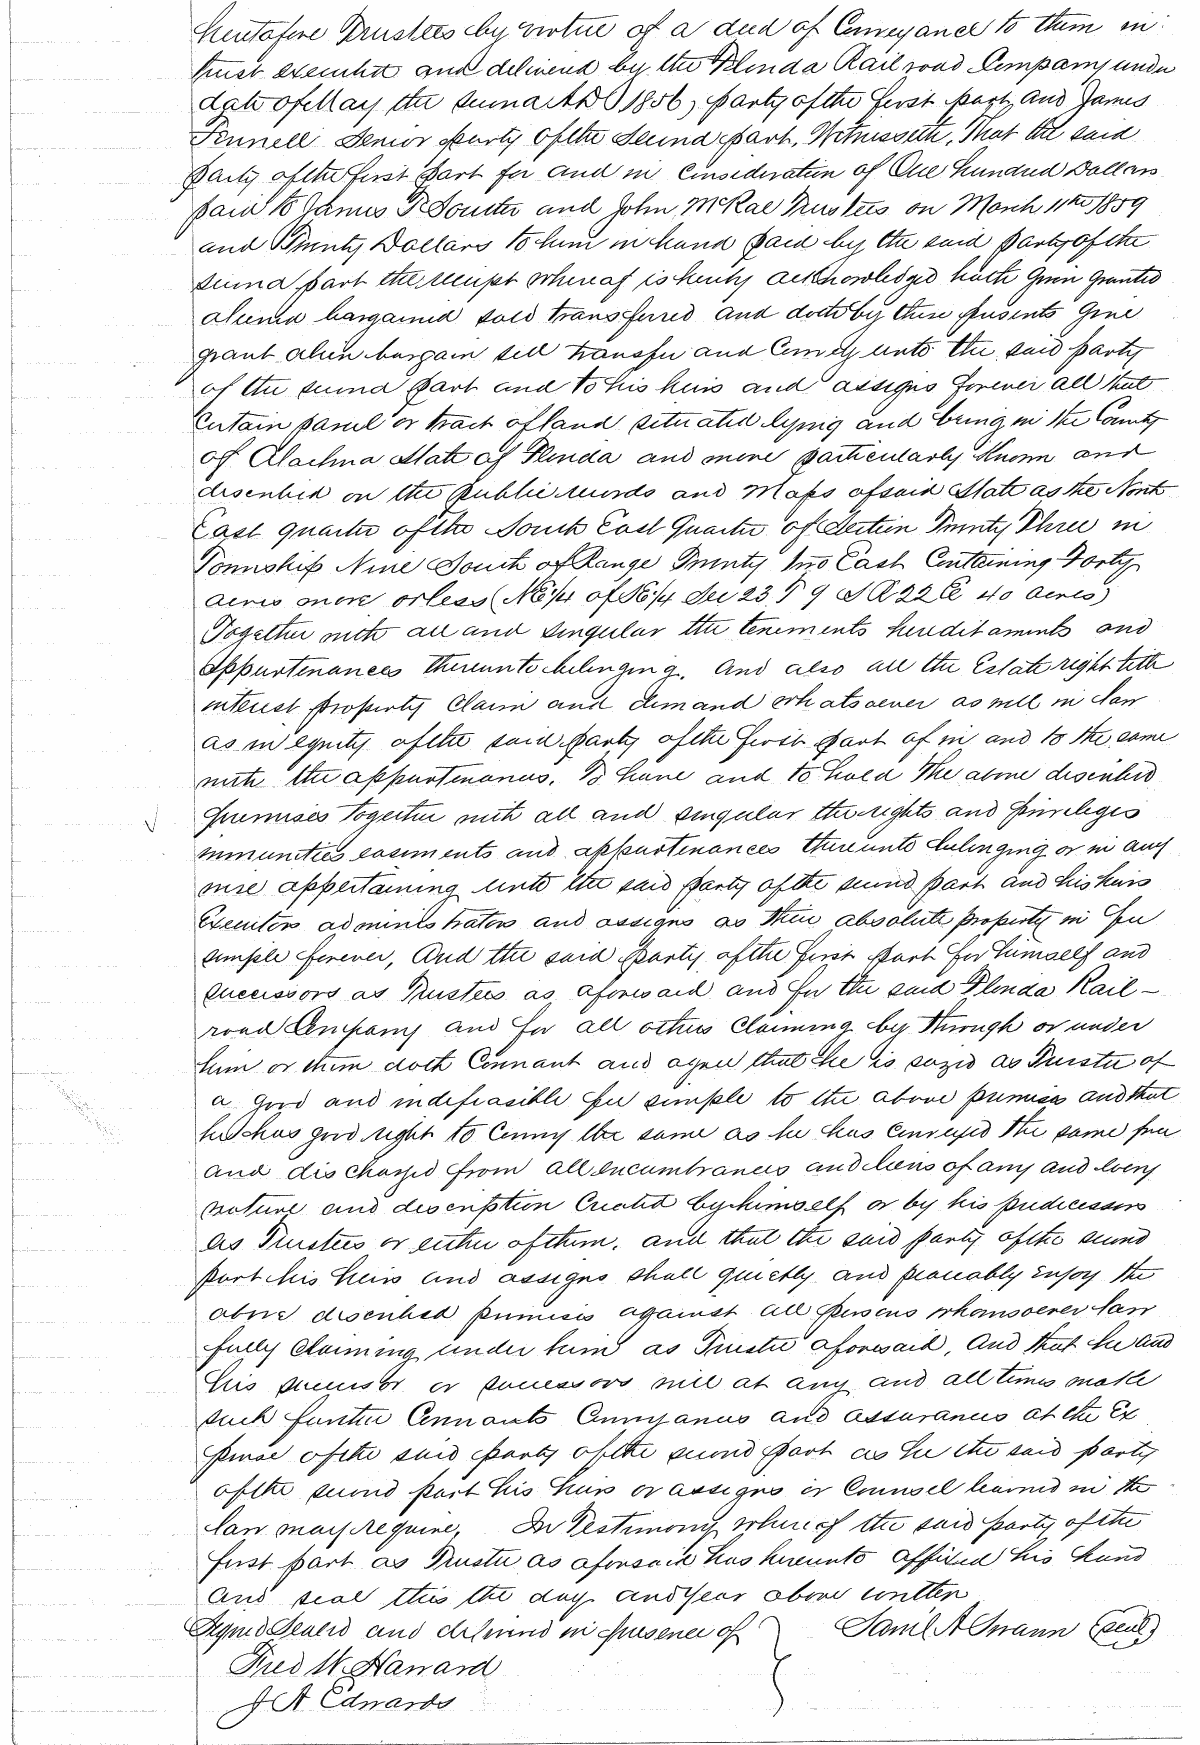 heretofore Trustees by virtue of a deed of Conveyance to them in
trust executed and delivered by the Florida Rail road Company under
date of May the second AD 1856, party of the first part and James
Pennell Senior party of the Second part, Witnesseth, That the said
party of the first part for and in Consideration of One hundred Dollars
paid to James T Soutter and John McRae Trustees on March 11th 1859
and Twenty Dollars to him in hand paid by the said party of the
second part the receipt whereof is hereby acknowledged hath given granted
aliened bargained sold transferred and doth by these presents give
grant alien bargain sell transfer and Convey unto the said party
of the second part and to his heirs and assigns forever all that
Certain parcel or tract of land situated lying and being in the County
of Alachua State of Florida and more particularly Known and
described on the public records and Maps of said State as the North
East quarter of the South East Quarter of Section Twenty Three in
Township Nine South of Range Twenty Two East Containing Forty
acres more or less (NE 1/4 of SE 1/4 Sec 23 T 9 S R 22 E 40 acres)
Together with all and singular the tenements hereditaments and
appurtenances thereunto belonging. And also all the Estate right title
interest property Claim and demand whatsoever as well in law
as in equity of the said party of the first part of in and to the same
with the appurtenances. To have and to hold the above described
premises together with all and singular the rights and privileges
immunities easments and appurtenances thereunto belonging or in any
wise appertaining unto the said party of the second part and his heirs
Executors administrators and assigns as their absolute property in fee
simple forever, And the said party of the first part for himself and
successors as Trustees as aforesaid and for the said Florida Rail-
road Company and for all others Claiming by through or under
him or them doth Covenant and agree that he is sezed as Trustee of
a good and indefeasible fee simple to the above premises and that
he has good right to Convey the same as he has Conveyed the same free
and discharged from all encumbrances and liens of any and every
nature and description Created by himself or by his predecessors
as Trustees or either of them. and that the said party of the second
part his heirs and assigns shall quietly and peaceably Enjoy the
above described premises against all persons whomsoever law
fully Claiming under him as Trustee aforesaid, And that he and
his successor or successors will at any and all times make
such further Covenants Conveyances and assurances at the Ex
pense of the said party of the second part as he the said party
of the second part his heirs or assigns or Counsel learned in the
law may require. In Testimony whereof the said party of the
first part as Trustee as aforesaid has hereunto affixed his hand
and seal this the day and Year above written
Signed Sealed and delivered in presence of } Saml A Swann (seal)
Fred W. Hanard
J A Edwards